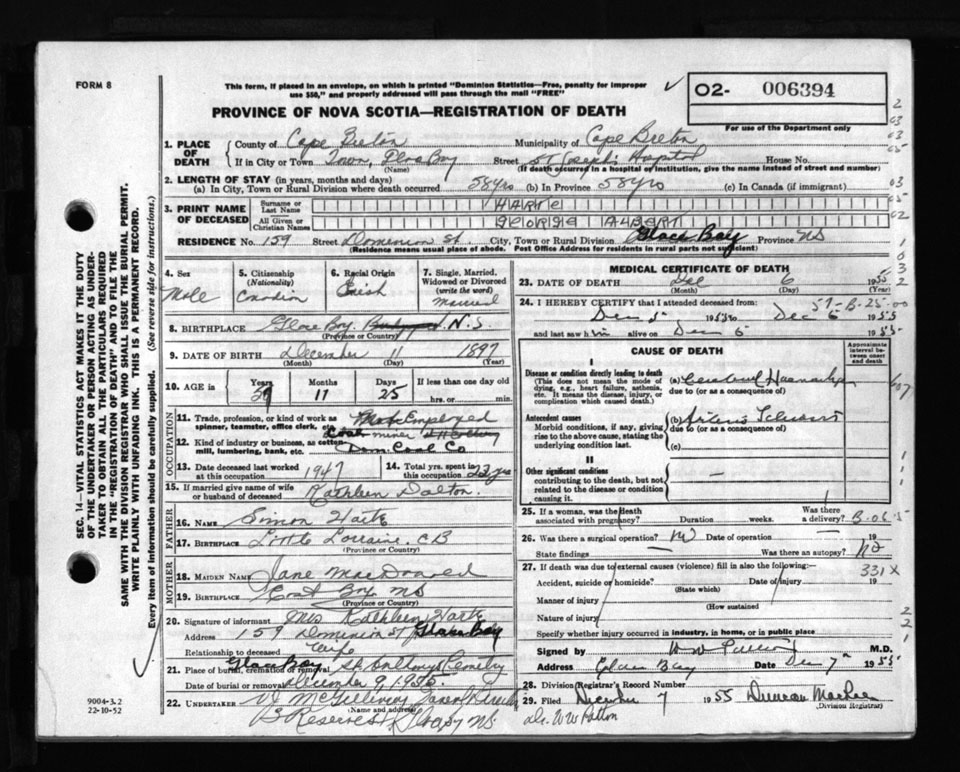 FORM 8
This form, if placed in an envelope, on which is printed "Dominion Statistics—Free, penalty for improper
use $50," and properly addressed will pass through the mail "FREE"
02- 006394
For use of the Department only
PROVINCE OF NOVA SCOTIA—REGISTRATION OF DEATH
1. PLACE OF DEATH
County of Cape Breton Municipality of Cape Breton
If in City or Town Town, Glace Bay Street St Joseph's Hospital House No.
(Name) (If death occurred in a hospital or institution, give the name instead of street and number)
2. LENGTH OF STAY (in years, months and days)
(a) In City, Town or Rural Division where death occurred 58 yrs (b) In Province 58 yrs (c) In Canada (if immigrant)
3. PRINT NAME OF DECEASED
Surname or Last Name HARTE
All Given or Christian Names GEORGE ALBERT
RESIDENCE No. 159 Street Dominion St. City, Town or Rural Division Glace Bay Province NS
(Residence means usual place of abode. Post Office Address for residents in rural parts not sufficient)
4. Sex Male
5. Citizenship (Nationality) Canadian
6. Racial Origin Irish
7. Single, Married, Widowed or Divorced (write the word) Married
8. BIRTHPLACE Glace Bay, N.S.
(Province or Country)
9. DATE OF BIRTH December 11 1897
(Month) (Day) (Year)
10. AGE in Years Months 11 Days 25 If less than one day old
hrs. or min.
OCCUPATION
11. Trade, profession, or kind of work as spinner, teamster, office clerk, etc. Not Employed
Coal miner
12. Kind of industry or business, as cotton mill, lumbering, bank, etc. Dom Coal Co
13. Date deceased last worked at this occupation 1947
14. Total yrs. spent in this occupation 22 yrs
15. If married give name of wife or husband of deceased Kathleen Dalton.
FATHER
16. Name Simon Harte
17. Birthplace Little Lorraine, CB
(Province or Country)
MOTHER
18. Maiden Name Jane MacDonald
19. Birthplace Bay NS
(Province or Country)
20. Signature of informant Mrs Kathleen Harte
Address 159 Dominion St Glace Bay
Relationship to deceased Wife
21. Place of burial, cremation or removal Glace Bay St. Anthonys Cemetery
Date of burial or removal December 9, 1955
22. UNDERTAKER V J McGillivray
(Name and address)
B Reserve St Glace Bay NS.
MEDICAL CERTIFICATE OF DEATH
23. DATE OF DEATH Dec 6 1955
(Month) (Day)
24. I HEREBY CERTIFY that I attended deceased from 57-B-25-00
Dec 5 1955 to Dec 6 1955
and last saw him alive on Dec 5 1955
CAUSE OF DEATH
Approximate interval between onset and death
I
Disease or condition directly leading to death
(This does not mean the mode of dying, e.g., heart failure, asthenia, etc. It means the disease, injury, or complication which caused death.)
(a) Cerebral Haemorrhage
due to (or as a consequence of)
Antecedent causes
Morbid conditions, if any, giving rise to the above cause, stating the underlying condition last.
(b) Arterio Sclerosis
due to (or as a consequence of)
(c)
II
Other significant conditions
contributing to the death, but not related to the disease or condition causing it.
25. If a woman, was the death associated with pregnancy? Duration weeks. Was there a delivery?
26. Was there a surgical operation? No Date of operation 19
State findings Was there an autopsy? No
27. If death was due to external causes (violence) fill in also the following:— 331X
Accident, suicide or homicide? Date of injury 19
(State which)
Manner of injury
(How sustained
Nature of injury
Specify whether injury occurred in industry, in home, or in public place
Signed by M.D.
Address Glace Bay Date Dec 7 1955
28. Division Registrar's Record Number
29. Filed December 7 1955 Duncan MacRae
(Division Registrar)
dr. W W Patton
SEC. 14—VITAL STATISTICS ACT MAKES IT THE DUTY
OF THE UNDERTAKER OR PERSON ACTING AS UNDER-
TAKER TO OBTAIN ALL THE PARTICULARS REQUIRED
IN THE "REGISTRATION OF DEATH" AND TO FILE THE
SAME WITH THE DIVISION REGISTRAR WHO SHALL ISSUE THE BURIAL PERMIT.
WRITE PLAINLY WITH UNFADING INK. THIS IS A PERMANENT RECORD.
Every item of information should be carefully supplied. (See reverse side for instructions.)
9004-3.2
22-10-52